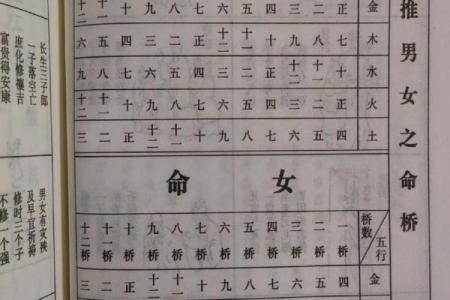 推男女之命桥
金 正 二 三 四 五 六 七 八 九 十 十一 十二
木 七 八 九 十 十一 十二 正 二 三 四 五 六
水 十 十一 十二 正 二 三 四 五 六 七 八 九
火 正 二 三 四 五 六 七 八 九 十 十一 十二
土 四 五 六 七 八 九 十 十一 十二 正 二 三
女命
桥数 五行 一桥 二桥 三桥 四桥 五桥 六桥 七桥 八桥 九桥 十桥 十一桥 十二桥
金 四 五 六 七 八 九 十 十一 十二 正 二 三
长生三子郎
一子落空亡
庶化修禳吉
富贵得安康
男女有家殃
及早宜祈
修时三个子
不修一个强